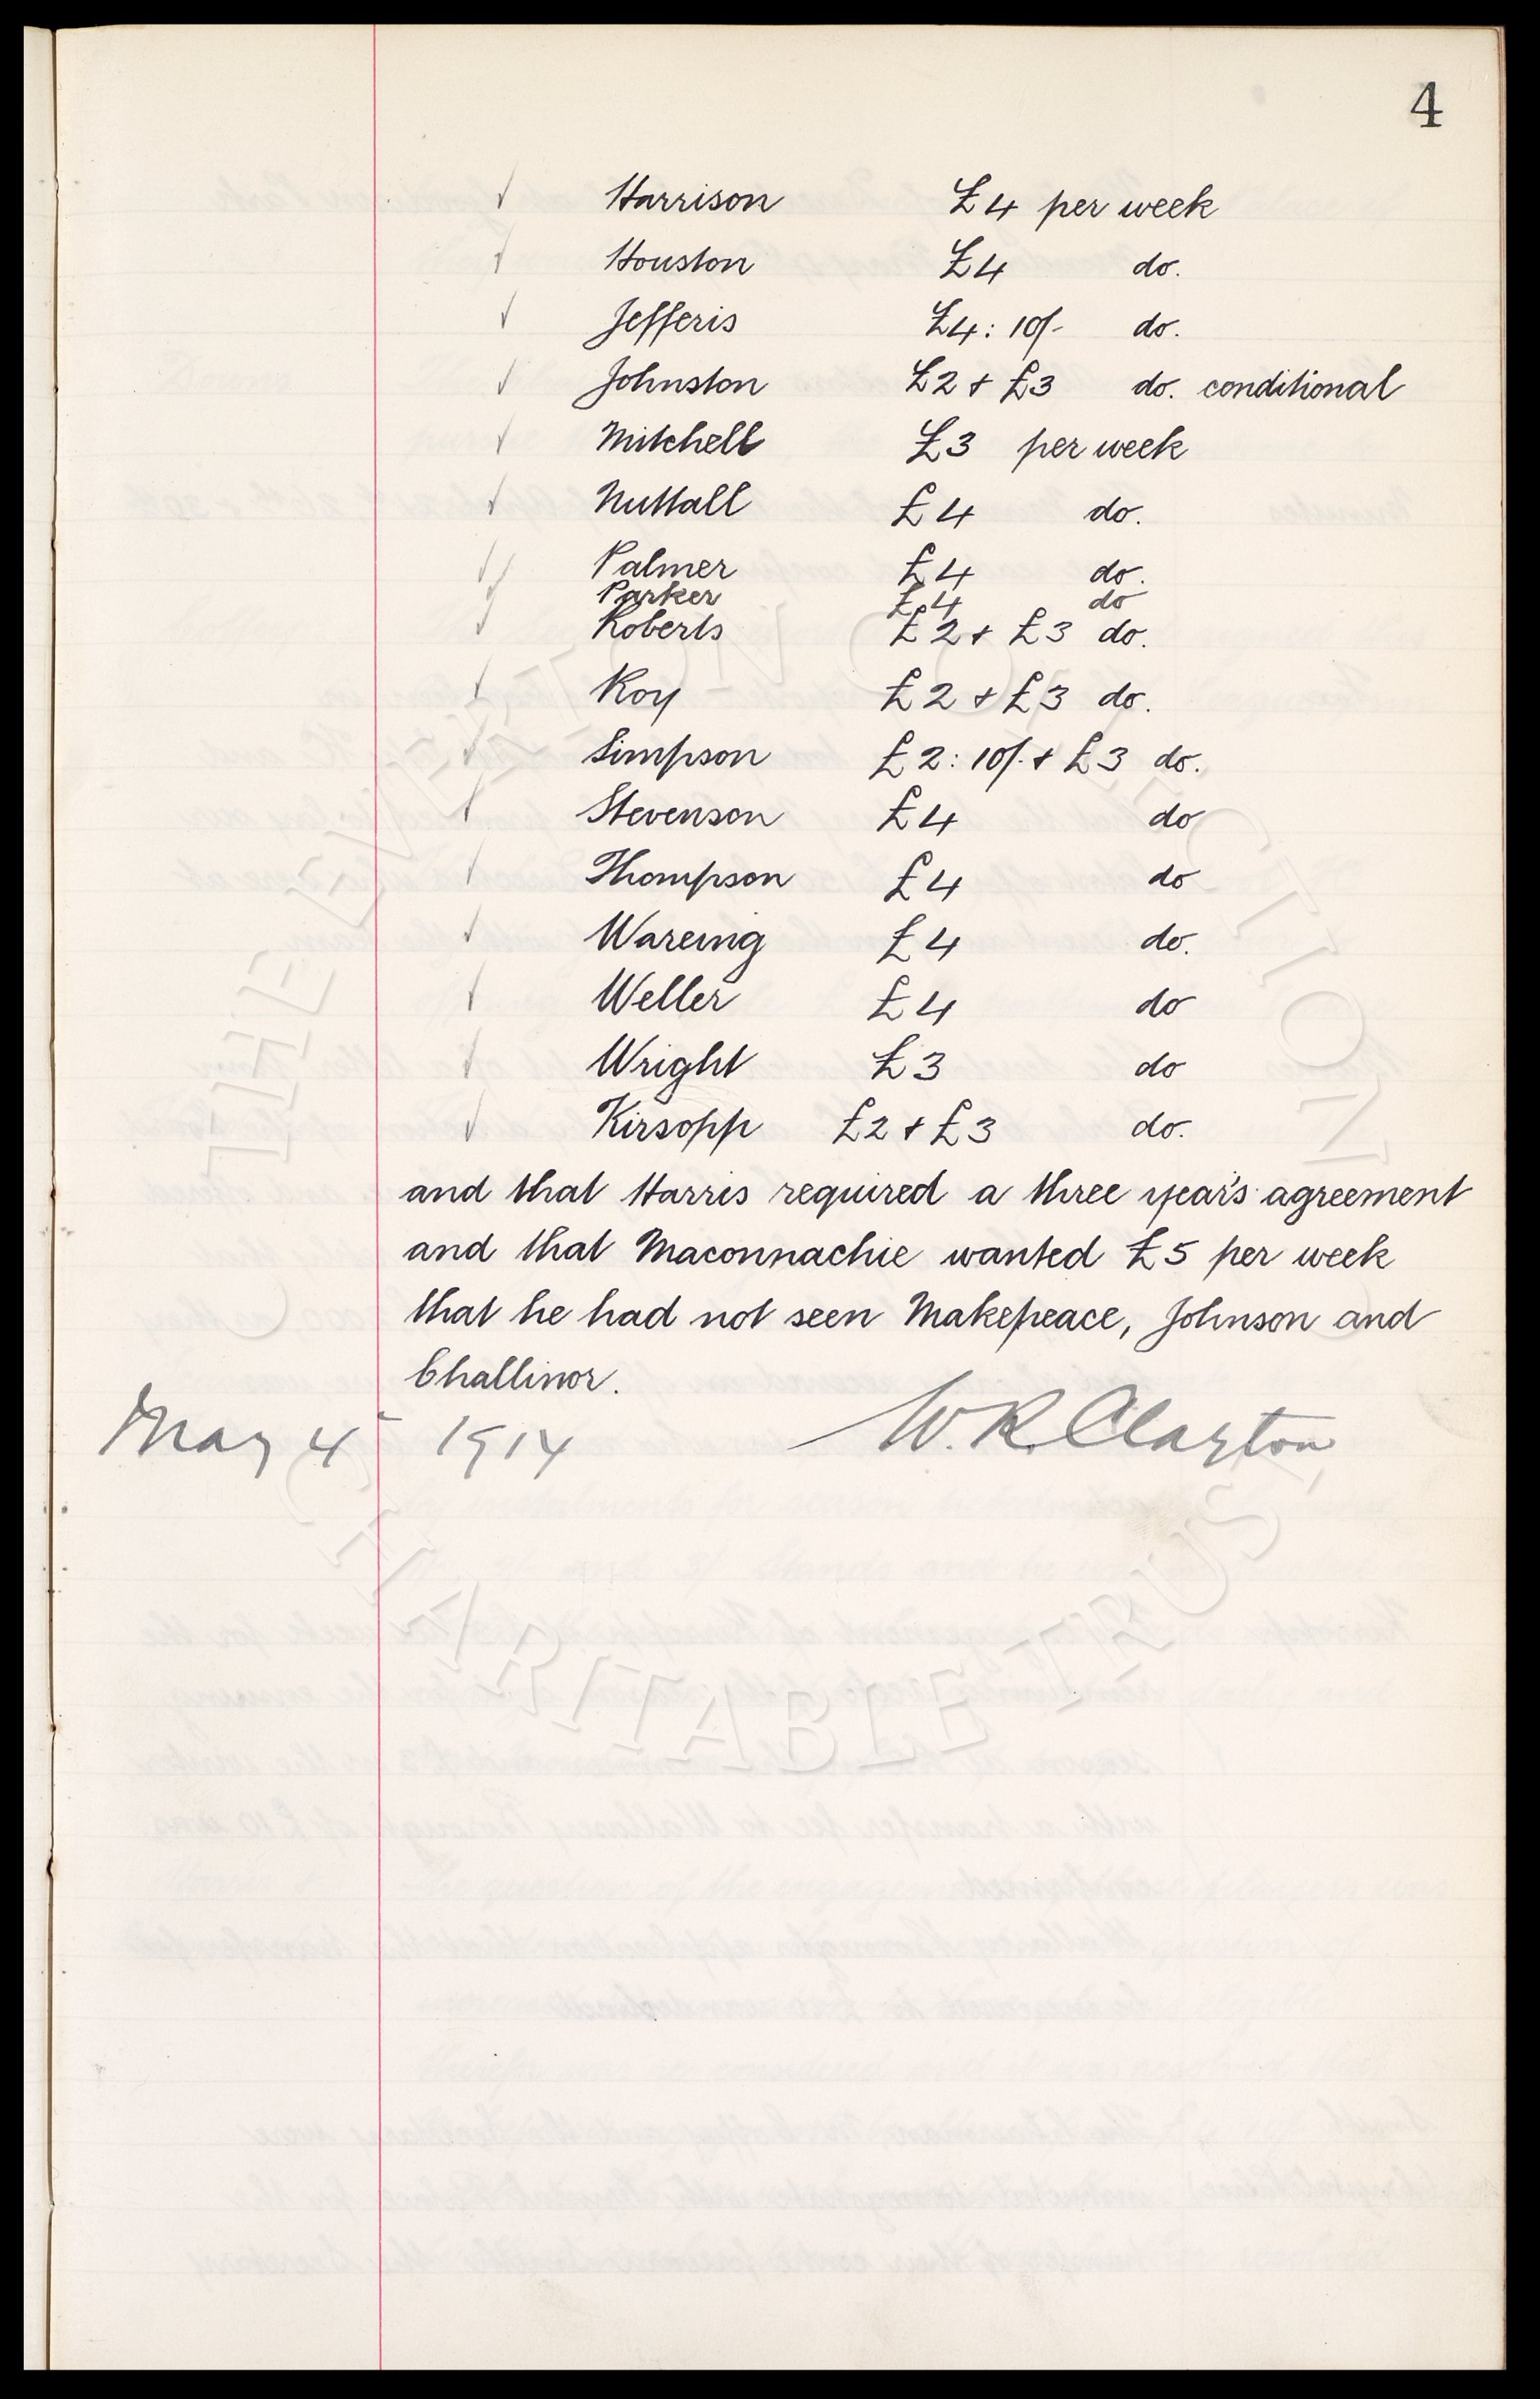 4
Harrison £4 per week
Houston £4 do.
Jefferis £4: 10/- do.
Johnston £2 + £3 do. conditional
Mitchell £3 per week
Nuttall £4 do.
Palmer £4 do.
Parker £4 do
Roberts £2 + £3 do.
Roy £2 + £3 do.
Simpson £2: 10/- + £3 do.
Stevenson £4 do
Thompson £4 do
Wareing £4 do.
Weller £4 do
Wright £3 do
Kirsopp £2 + £3 do.
and that Harris required a three year's agreement
and that Maconnachie wanted £5 per week
that he had not seen Makepeace, Johnson and
Challinor.
May 4 1914 W. R. Clayton
THE EVERTON COLLECTION
CHARITABLE TRUST